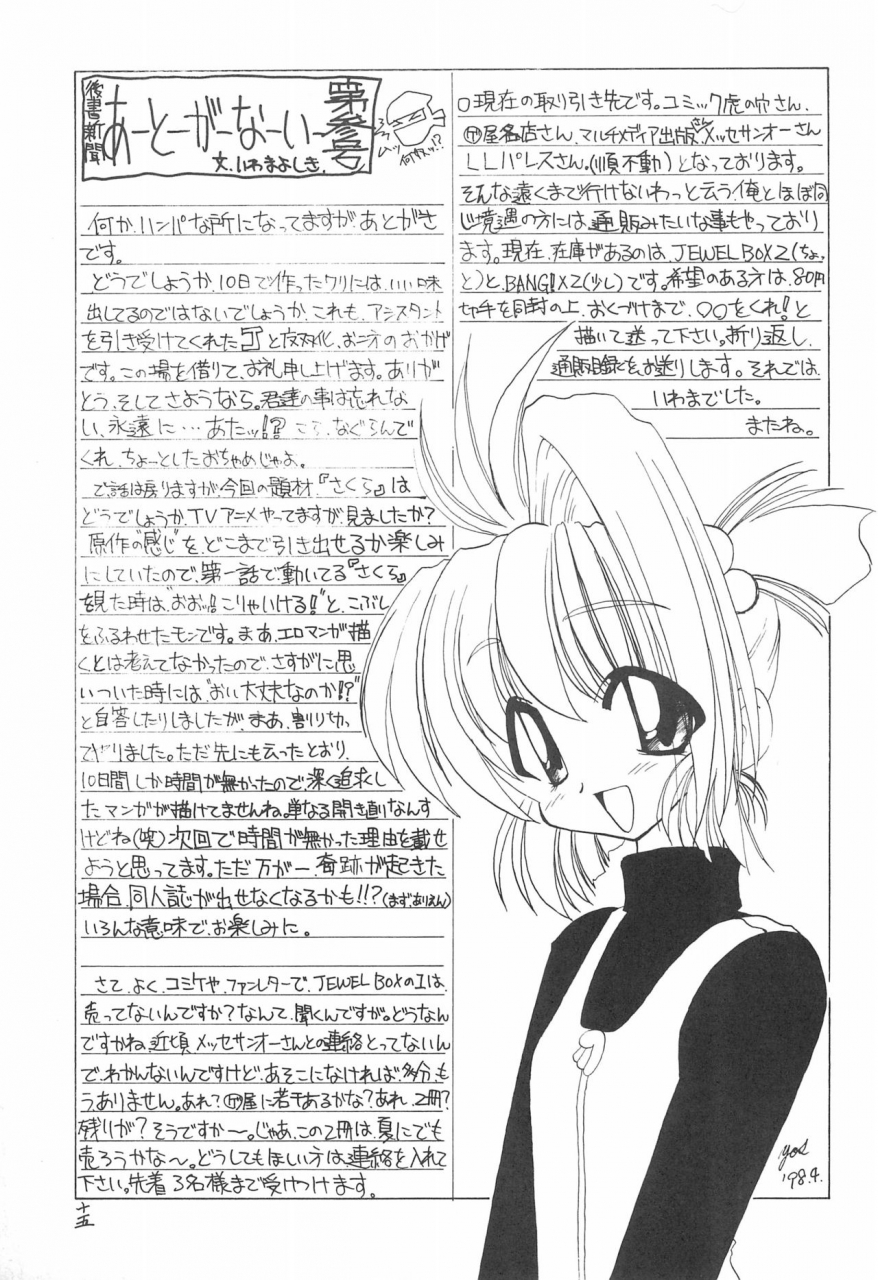 後書新聞
あーとーがーなーいー
第参号
文、いわまよしき。
何ヤツ!?
何か、ハンパな所になってますが、あとがき
です。
どうでしょうか、10日で作ったワリには、いい味
出してるのではないでしょうか、これも、アシスタント
を引き受けてくれた
です。この場を借りて、お礼申し上げます。ありが
とう、そしてさようなら。君達の事は忘れな
い、永遠に…あたッ!?こらっ、なぐるんで
くれ、ちょーっとしたおちゃめじゃよ。
で、話は戻りますが、今回の題材、『さくら』は
どうでしょうか、TVアニメやってますが、見ましたか?
原作の“感じ”を、どこまで引き出せるか楽しみ
にしていたので、第一話で動いてる『さくら』
を見た時は、“おおッ!こりゃいける!!”と、こぶし
をふるわせたモンです。まあ、エロマンガ描
くとは考えてなかったので、さすがに思
いついた時には“おい大丈夫なのか!?”
と自答したりしましたが、まあ、割り切っ
てやりました。ただ先にも云ったとおり、
10日間しか時間が無かったので、深く追求し
たマンガが描けてませんね。単なる開き直りなんす
けどね(笑)次回で時間が無かった理由を載せ
ようと思ってます。ただ万が一、奇跡が起きた
場合、同人誌が出せなくなるかも!!?(まず、ありえん)
いろんな意味で、お楽しみに。
さて、よく、コミケや、ファンレターで、JEWEL BOXのIは、
売ってないんですか?なんて、聞くんですが。どうなん
ですかね、近頃、メッセサンオーさんとの連絡とってないん
で、わかんないんですけど、あそこになければ、多分、も
う、ありません。あれ?屋に若干あるかな?あれ、2冊?
残りが?そうですか〜。じゃあ、この2冊は、夏にでも
売ろうかな〜。どうしてもほしい方は、連絡を入れて
下さい。先着3名様まで受けつけます。
○現在の取り引き先です。コミック虎の穴さん、
屋名店さん、マルチメディア出版さん、メッセサンオーさん
LLパレスさん。(順不動)となっております。
そんな遠くまで行けないわっと云う、俺とほぼ同
じ境遇の方には、通販みたいな事もやっており
ます。現在、在庫があるのは、JEWEL BOX2(ちょ
と)と、BANG!X2(少し)です。希望のある方は、80円
切手を同封の上、おくづけまで、○○をくれ!と
描いて送って下さい。折り返し、
通販目録を、お送りします。それでは、
いわまでした。
またね。
yos
'98.4.
十五